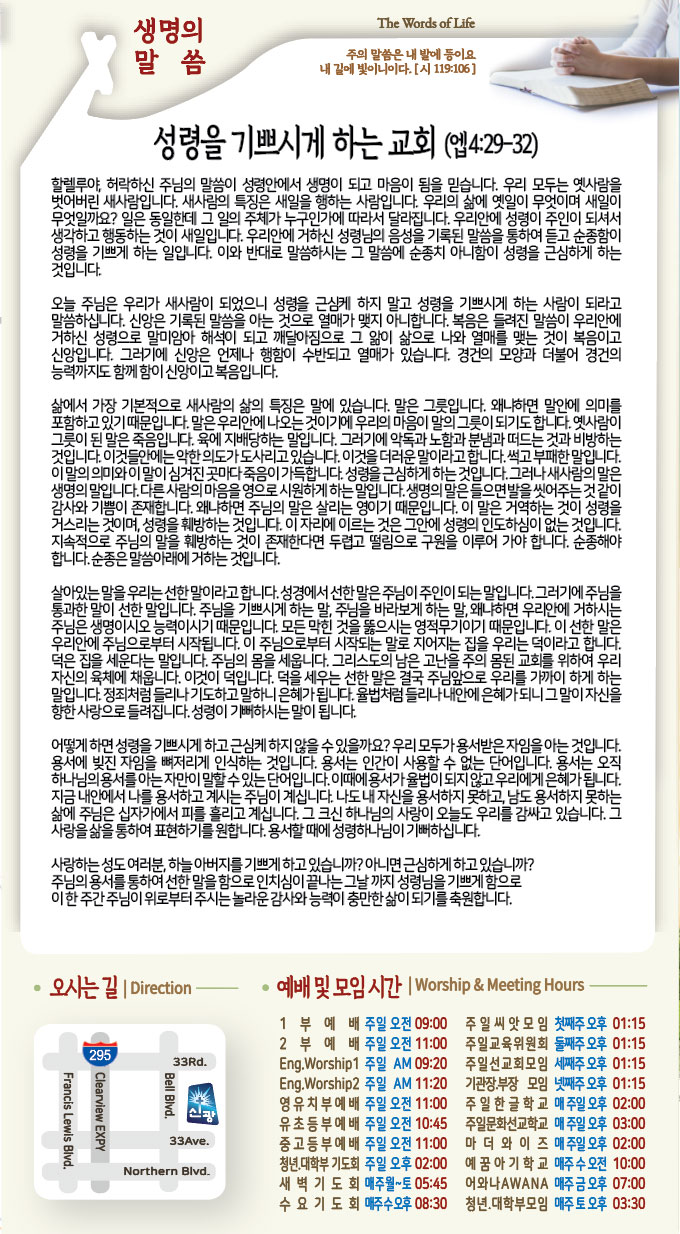 생명의
말 씀
The Words of Life
주의 말씀은 내 발에 등이요
내 길에 빛이니이다. [ 시 119:106 ]
성령을 기쁘시게 하는 교회 (엡4:29-32)
할렐루야, 허락하신 주님의 말씀이 성령안에서 생명이 되고 마음이 됨을 믿습니다. 우리 모두는 옛사람을
벗어버린 새사람입니다. 새사람의 특징은 새일을 행하는 사람입니다. 우리의 삶에 옛일이 무엇이며 새일이
무엇일까요? 일은 동일한데 그 일의 주체가 누구인가에 따라서 달라집니다. 우리안에 성령이 주인이 되셔서
생각하고 행동하는 것이 새일입니다. 우리안에 거하신 성령님의 음성을 기록된 말씀을 통하여 듣고 순종함이
성령을 기쁘게 하는 일입니다. 이와 반대로 말씀하시는 그 말씀에 순종치 아니함이 성령을 근심하게 하는
것입니다.
오늘 주님은 우리가 새사람이 되었으니 성령을 근심케 하지 말고 성령을 기쁘시게 하는 사람이 되라고
말씀하십니다. 신앙은 기록된 말씀을 아는 것으로 열매가 맺지 아니합니다. 복음은 들려진 말씀이 우리안에
거하신 성령으로 말미암아 해석이 되고 깨달아짐으로 그 앎이 삶으로 나와 열매를 맺는 것이 복음이고
신앙입니다. 그러기에 신앙은 언제나 행함이 수반되고 열매가 있습니다. 경건의 모양과 더불어 경건의
능력까지도 함께 함이 신앙이고 복음입니다.
삶에서 가장 기본적으로 새사람의 삶의 특징은 말에 있습니다. 말은 그릇입니다. 왜냐하면 말안에 의미를
포함하고 있기 때문입니다. 말은 우리안에 나오는 것이기에 우리의 마음이 말의 그릇이 되기도 합니다. 옛사람이
그릇이 된 말은 죽음입니다. 육에 지배당하는 말입니다. 그러기에 악독과 노함과 분냄과 떠드는 것과 비방하는
것입니다. 이것들안에는 악한 의도가 도사리고 있습니다. 이것을 더러운 말이라고 합니다. 썩고 부패한 말입니다.
이 말의 의미와 이 말이 심겨진 곳마다 죽음이 가득합니다. 성령을 근심하게 하는 것입니다. 그러나 새사람의 말은
생명의 말입니다. 다른 사람의 마음을 영으로 시원하게 하는 말입니다. 생명의 말은 들으면 발을 씻어주는 것 같이
감사와 기쁨이 존재합니다. 왜냐하면 주님의 말은 살리는 영이기 때문입니다. 이 말은 거역하는 것이 성령을
거스리는 것이며, 성령을 훼방하는 것입니다. 이 자리에 이르는 것은 그안에 성령의 인도하심이 없는 것입니다.
지속적으로 주님의 말을 훼방하는 것이 존재한다면 두렵고 떨림으로 구원을 이루어 가야 합니다. 순종해야
합니다. 순종은 말씀아래에 거하는 것입니다.
살아있는 말을 우리는 선한 말이라고 합니다. 성경에서 선한 말은 주님이 주인이 되는 말입니다. 그러기에 주님을
통과한 말이 선한 말입니다. 주님을 기쁘시게 하는 말, 주님을 바라보게 하는 말, 왜냐하면 우리안에 거하시는
주님은 생명이시오 능력이시기 때문입니다. 모든 막힌 것을 뚫으시는 영적무기이기 때문입니다. 이 선한 말은
우리안에 주님으로부터 시작됩니다. 이 주님으로부터 시작되는 말로 지어지는 집을 우리는 덕이라고 합니다.
덕은 집을 세운다는 말입니다. 주님의 몸을 세웁니다. 그리스도의 남은 고난을 주의 몸된 교회를 위하여 우리
자신의 육체에 채웁니다. 이것이 덕입니다. 덕을 세우는 선한 말은 결국 주님앞으로 우리를 가까이 하게 하는
말입니다. 정죄처럼 들리나 기도하고 말하니 은혜가 됩니다. 율법처럼 들리나 내안에 은혜가 되니 그 말이 자신을
향한 사랑으로 들려집니다. 성령이 기뻐하시는 말이 됩니다.
어떻게 하면 성령을 기쁘시게 하고 근심케 하지 않을 수 있을까요? 우리 모두가 용서받은 자임을 아는 것입니다.
용서에 빚진 자임을 뼈저리게 인식하는 것입니다. 용서는 인간이 사용할 수 없는 단어입니다. 용서는 오직
하나님의 용서를 아는 자만이 말할 수 있는 단어입니다. 이때에 용서가 율법이 되지 않고 우리에게 은혜가 됩니다.
지금 내안에서 나를 용서하고 계시는 주님이 계십니다. 나도 내 자신을 용서하지 못하고, 남도 용서하지 못하는
삶에 주님은 십자가에서 피를 흘리고 계십니다. 그 크신 하나님의 사랑이 오늘도 우리를 감싸고 있습니다. 그
사랑을 삶을 통하여 표현하기를 원합니다. 용서할 때에 성령하나님이 기뻐하십니다.
사랑하는 성도 여러분, 하늘 아버지를 기쁘게 하고 있습니까? 아니면 근심하게 하고 있습니까?
주님의 용서를 통하여 선한 말을 함으로 인치심이 끝나는 그날 까지 성령님을 기쁘게 함으로
이 한 주간 주님이 위로부터 주시는 놀라운 감사와 능력이 충만한 삶이 되기를 축원합니다.
오시는 길 | Direction
295
33Rd.
Francis Lewis Blvd.
Clearview EXPY
Bell Blvd.
신광
33Ave.
Northern Blvd.
예배 및 모임 시간 | Worship & Meeting Hours
1 부 예 배 주일 오전 09:00
2 부 예 배 주일 오전 11:00
Eng,Worship1 주일 AM 09:20
Eng.Worship2 주일 AM 11:20
영유치부예배 주일 오전 11:00
유초등부예배 주일 오전 10:45
중고등부예배 주일 오전 11:00
청년.대학부 기도회 주일 오후 02:00
새 벽 기 도 회 매주월~토 05:45
수 요 기 도 회 매주수오후 08:30
주일씨앗모임 첫째주오후 01:15
주일교육위원회 둘째주오후 01:15
주일선교회모임 세째주오후 01:15
기관장.부장 모임 넷째주오후 01:15
주일한글학교 매주일오후 02:00
주일문화선교학교 매주일오후 03:00
마 더 와 이 즈 매주일오후 02:00
예꿈아기학교 매주수오전 10:00
어와나AWANA 매주금오후 07:00
청년.대학부모임 매주토오후 03:30